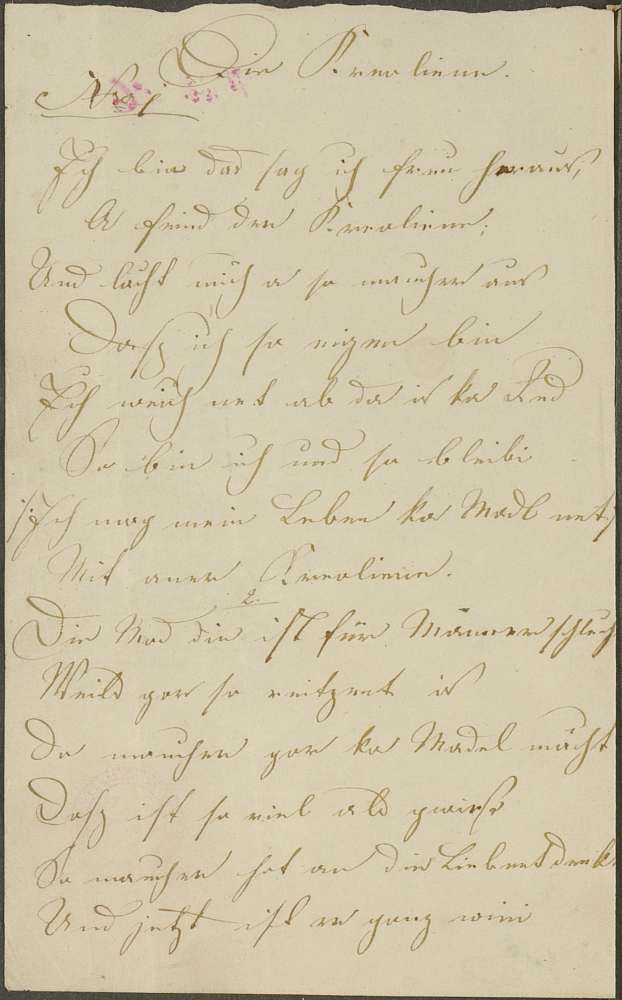 Die Kreoliene.
Nro 1
Ich bin das sag ich freu heraus,
A feind der Kreoliene;
Und lacht mich a so mancher aus
Dasz ich so eigen bin
Ich weich net ab da is ka Red
So bin ich und so bleibi
/: Ich mag mein Leben ka Madl net
Mit aner Kreoliene.
2.
Die Mod die ist für Männer schlech
Weils gar so reitzent is
Da mancher gar ka Madel mächt
Dasz ist so viel als gwisz
So mancher hat an die Lieb net denk
Und jetzt ist er ganz